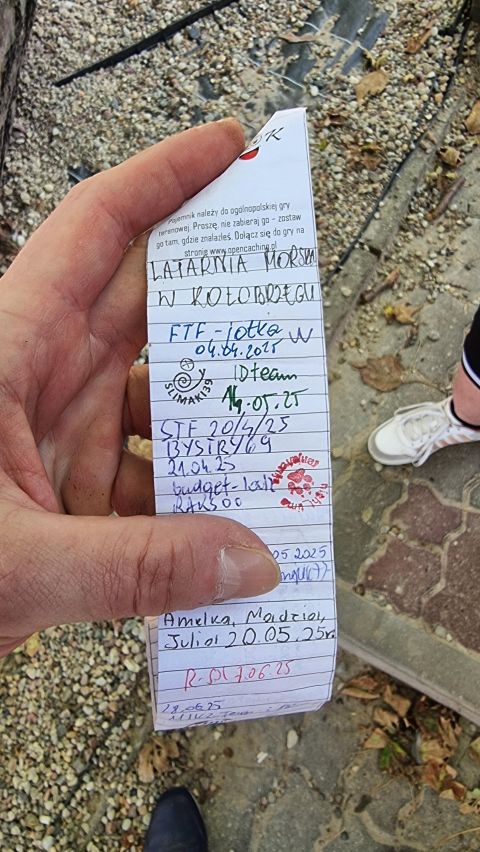 OK
Pojemnik należy do ogólnopolskiej gry
terenowej. Proszę, nie zabieraj go - zostaw
go tam, gdzie znalazłeś. Dołącz się do gry na
stronie www.opencaching.pl
LATARNIA MORSKA
W KOŁOBRZEGU
FTF - jotka W
04.04.2025
SLIMAKI39
IDteam
14.05.25
STF 20/4/25
BYSTRY69
21.04.25
budget-
RAK500
05 2025
Amelka, Madzia,
Julia 20.05.25r.
7.06.25
28.06.25